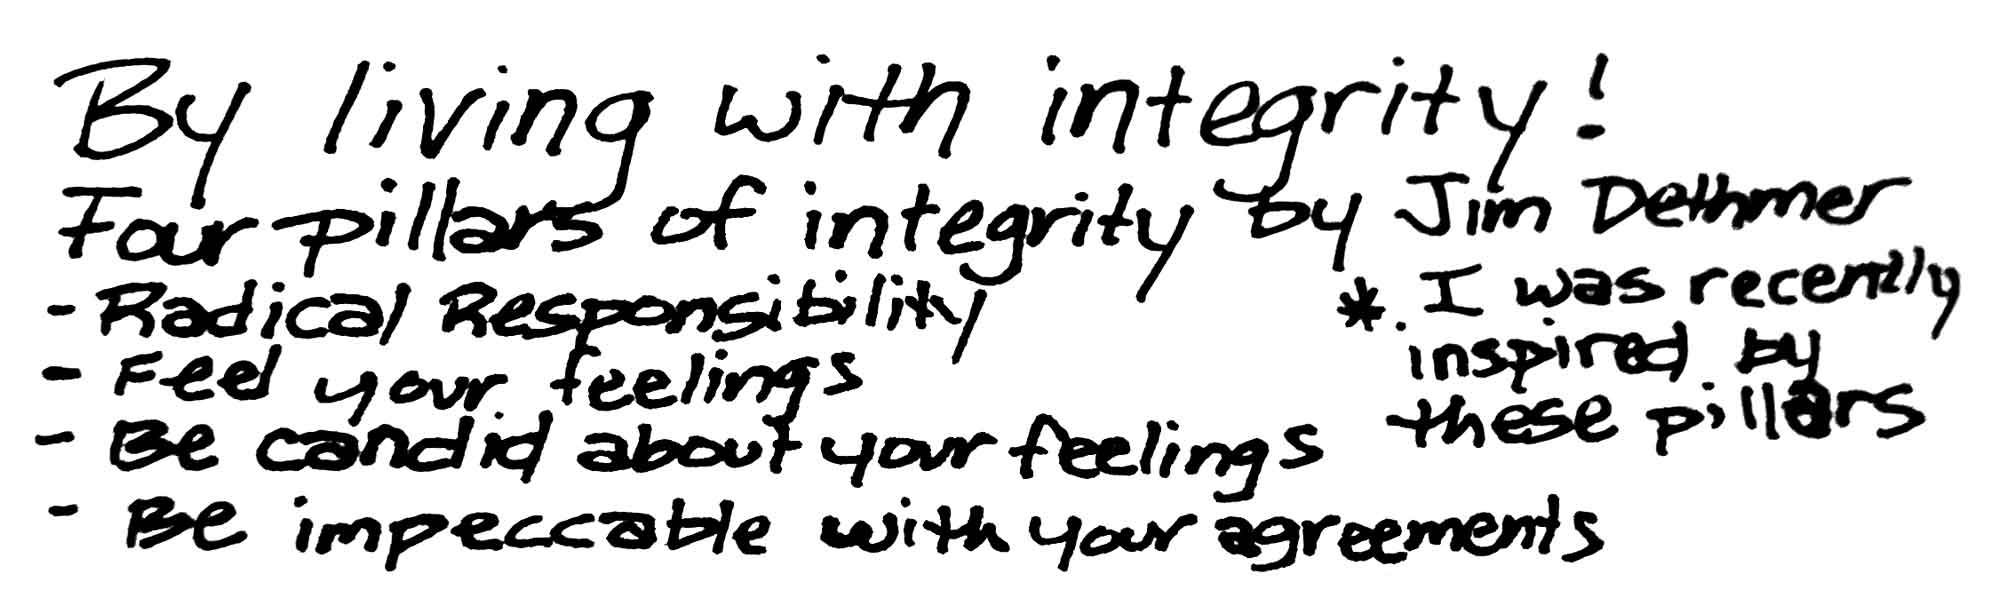 By living with integrity!
Four pillars of integrity by Jim Dethmer
- Radical Responsibility
- Feel your feelings
- Be candid about your feelings
- Be impeccable with your agreements
* I was recently
inspired by
these pillars